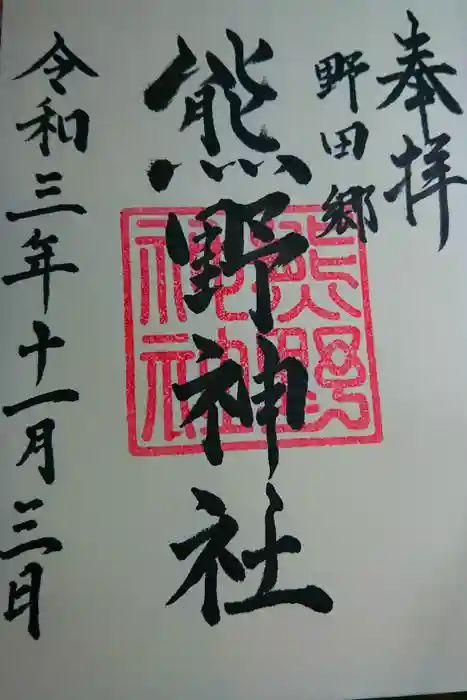 奉拝
野田郷
熊野神社
熊野神社
令和三年十一月三日